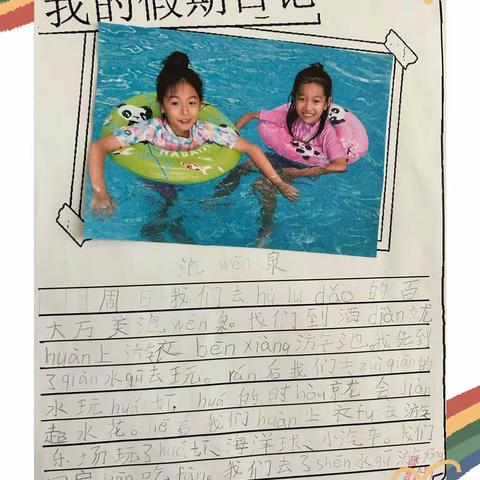 我的假期日记
泡 wēn 泉
周日我们去 hú lu dǎo 的百
大万美泡 wēn 泉。我们到酒 diàn 就
huàn 上 泳衣 bēn xiàng 游泳池。我先到
了 qiǎn 水 qū 去玩。rán 后我们去
水玩 huá 梯, huá 的时 hòu 就会 jiàn
起水花。jiē 着我们 huàn 上衣 fu 去游
乐场玩了 huá 梯、海洋球、小汽车。我们
吃 fàn。我们去了 shēn 水 qū